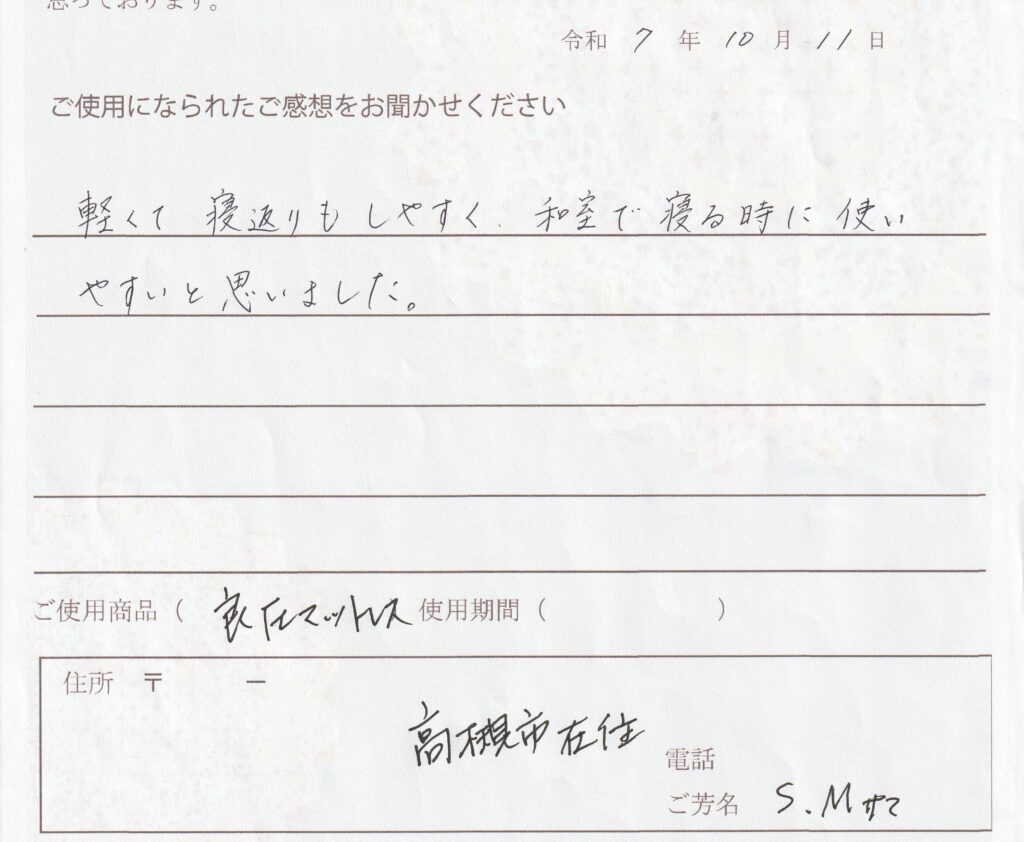 思っております。
令和 7 年 10 月 11 日
ご使用になられたご感想をお聞かせください
軽くて 寝返りも しやすく、和室で 寝る時に 使い
やすいと思いました。
ご使用商品（ 良圧マットレス 使用期間（ ）
住所 〒 −
高槻市在住
電話
ご芳名 S.M さま